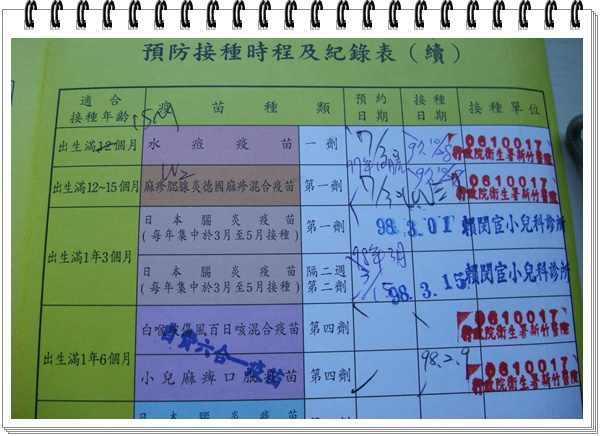 預防接種時程及紀錄表（續）
適合接種年齡 疫苗種類 預約日期 接種日期 接種單位
15M
出生滿12個月 水痘疫苗 一劑 7/30 0610017 行政院衛生署新竹醫院
出生滿12~15個月 麻疹腮腺炎德國麻疹混合疫苗 第一劑 0610017 行政院衛生署新竹醫院
出生滿1年3個月 日本腦炎疫苗 第一劑 98.3.01 賴閔宦小兒科診所
(每年集中於3月至5月接種)
日本腦炎疫苗 隔二週 98年3月
(每年集中於3月至5月接種) 第二劑 98.3.15 賴閔宦小兒科診所
出生滿1年6個月 白喉破傷風百日咳混合疫苗 第四劑 0610017 行政院衛生署新竹醫院
自費六合一疫苗
小兒麻痺口服疫苗 第四劑 98.2.9 0610017 行政院衛生署新竹醫院
日本腦炎疫苗